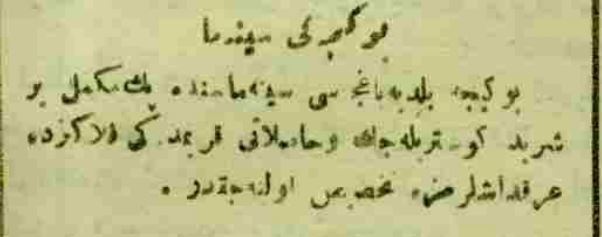 بو كیجه‌كی سینما
بو كیجه بلدیه باغچه‌سی سینه‌ماسنده پك مكمل بر
شرید كوستریله‌جك وحاصلاتی قریمده‌كی فلاكتزده
عرقداشلرمزه تخصیص اولنه‌جقدر .